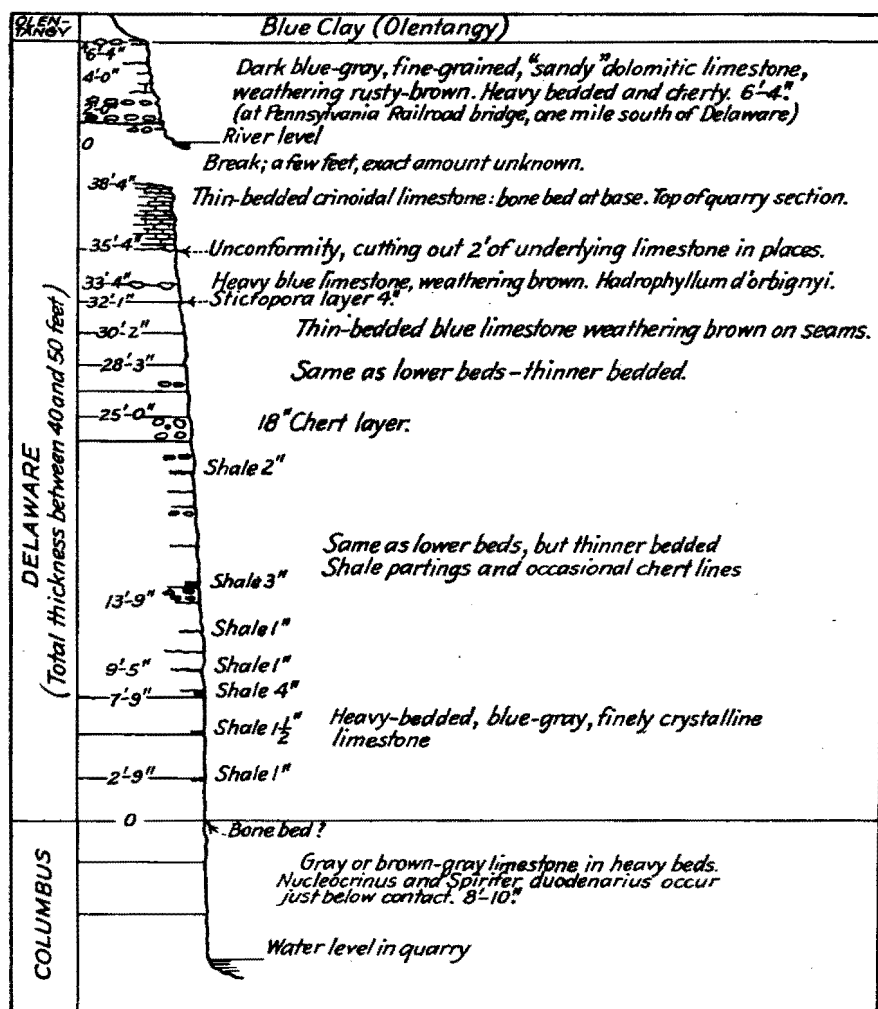 OLEN-
TANGY
Blue Clay (Olentangy)
6'-4"
4'-0"
2'-0"
0
Dark blue-gray, fine-grained, "sandy" dolomitic limestone,
weathering rusty-brown. Heavy bedded and cherty. 6'-4".
(at Pennsylvania Railroad bridge, one mile south of Delaware)
River level
Break; a few feet, exact amount unknown.
38'-4"
Thin-bedded crinoidal limestone: bone bed at base. Top of quarry section.
35'-4"
Unconformity, cutting out 2' of underlying limestone in places.
33'-4"
Heavy blue limestone, weathering brown. Hadrophyllum d'orbignyi.
32'-1"
Stictopora layer 4".
30'-2"
Thin-bedded blue limestone weathering brown on seams.
28'-3"
Same as lower beds - thinner bedded.
25'-0"
18" Chert layer.
Shale 2"
DELAWARE
(Total thickness between 40 and 50 feet)
Same as lower beds, but thinner bedded
Shale partings and occasional chert lines
Shale 3"
13'-9"
Shale 1"
9'-5"
Shale 1"
Shale 4"
7'-9"
Shale 1½"
Heavy-bedded, blue-gray, finely crystalline
limestone
2'-9"
Shale 1"
0
Bone bed?
COLUMBUS
Gray or brown-gray limestone in heavy beds.
Nucleocrinus and Spirifer duodenarius occur
just below contact. 8'-10".
Water level in quarry